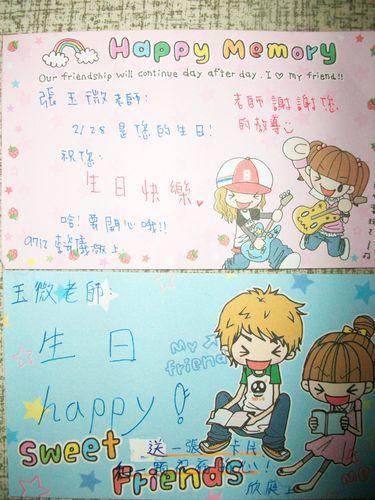 Happy Memory
Our friendship will continue day after day. I ♡ my friend!!
張玉微老師:
老師謝謝您
的教導
2/28是您的生日!
祝您:
生日快樂
哈!要開心哦!!
玉微老師:
生日
happy!
My
friend
Sweet
Friends
送一張卡片
欣展